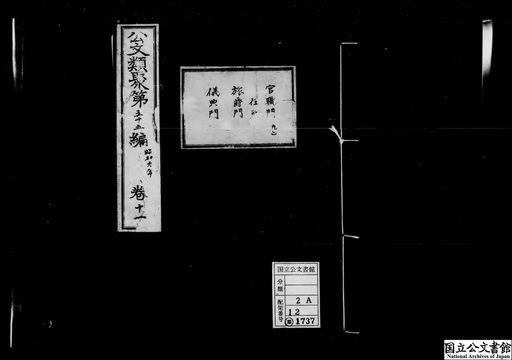 公文類聚第五十五編 昭和六年 巻十一
官職門 九止
任公
旅爵門
儀典門
国立公文書館
分類
配架番号
2A
12
類 1737
国立公文書館
National Archives of Japan